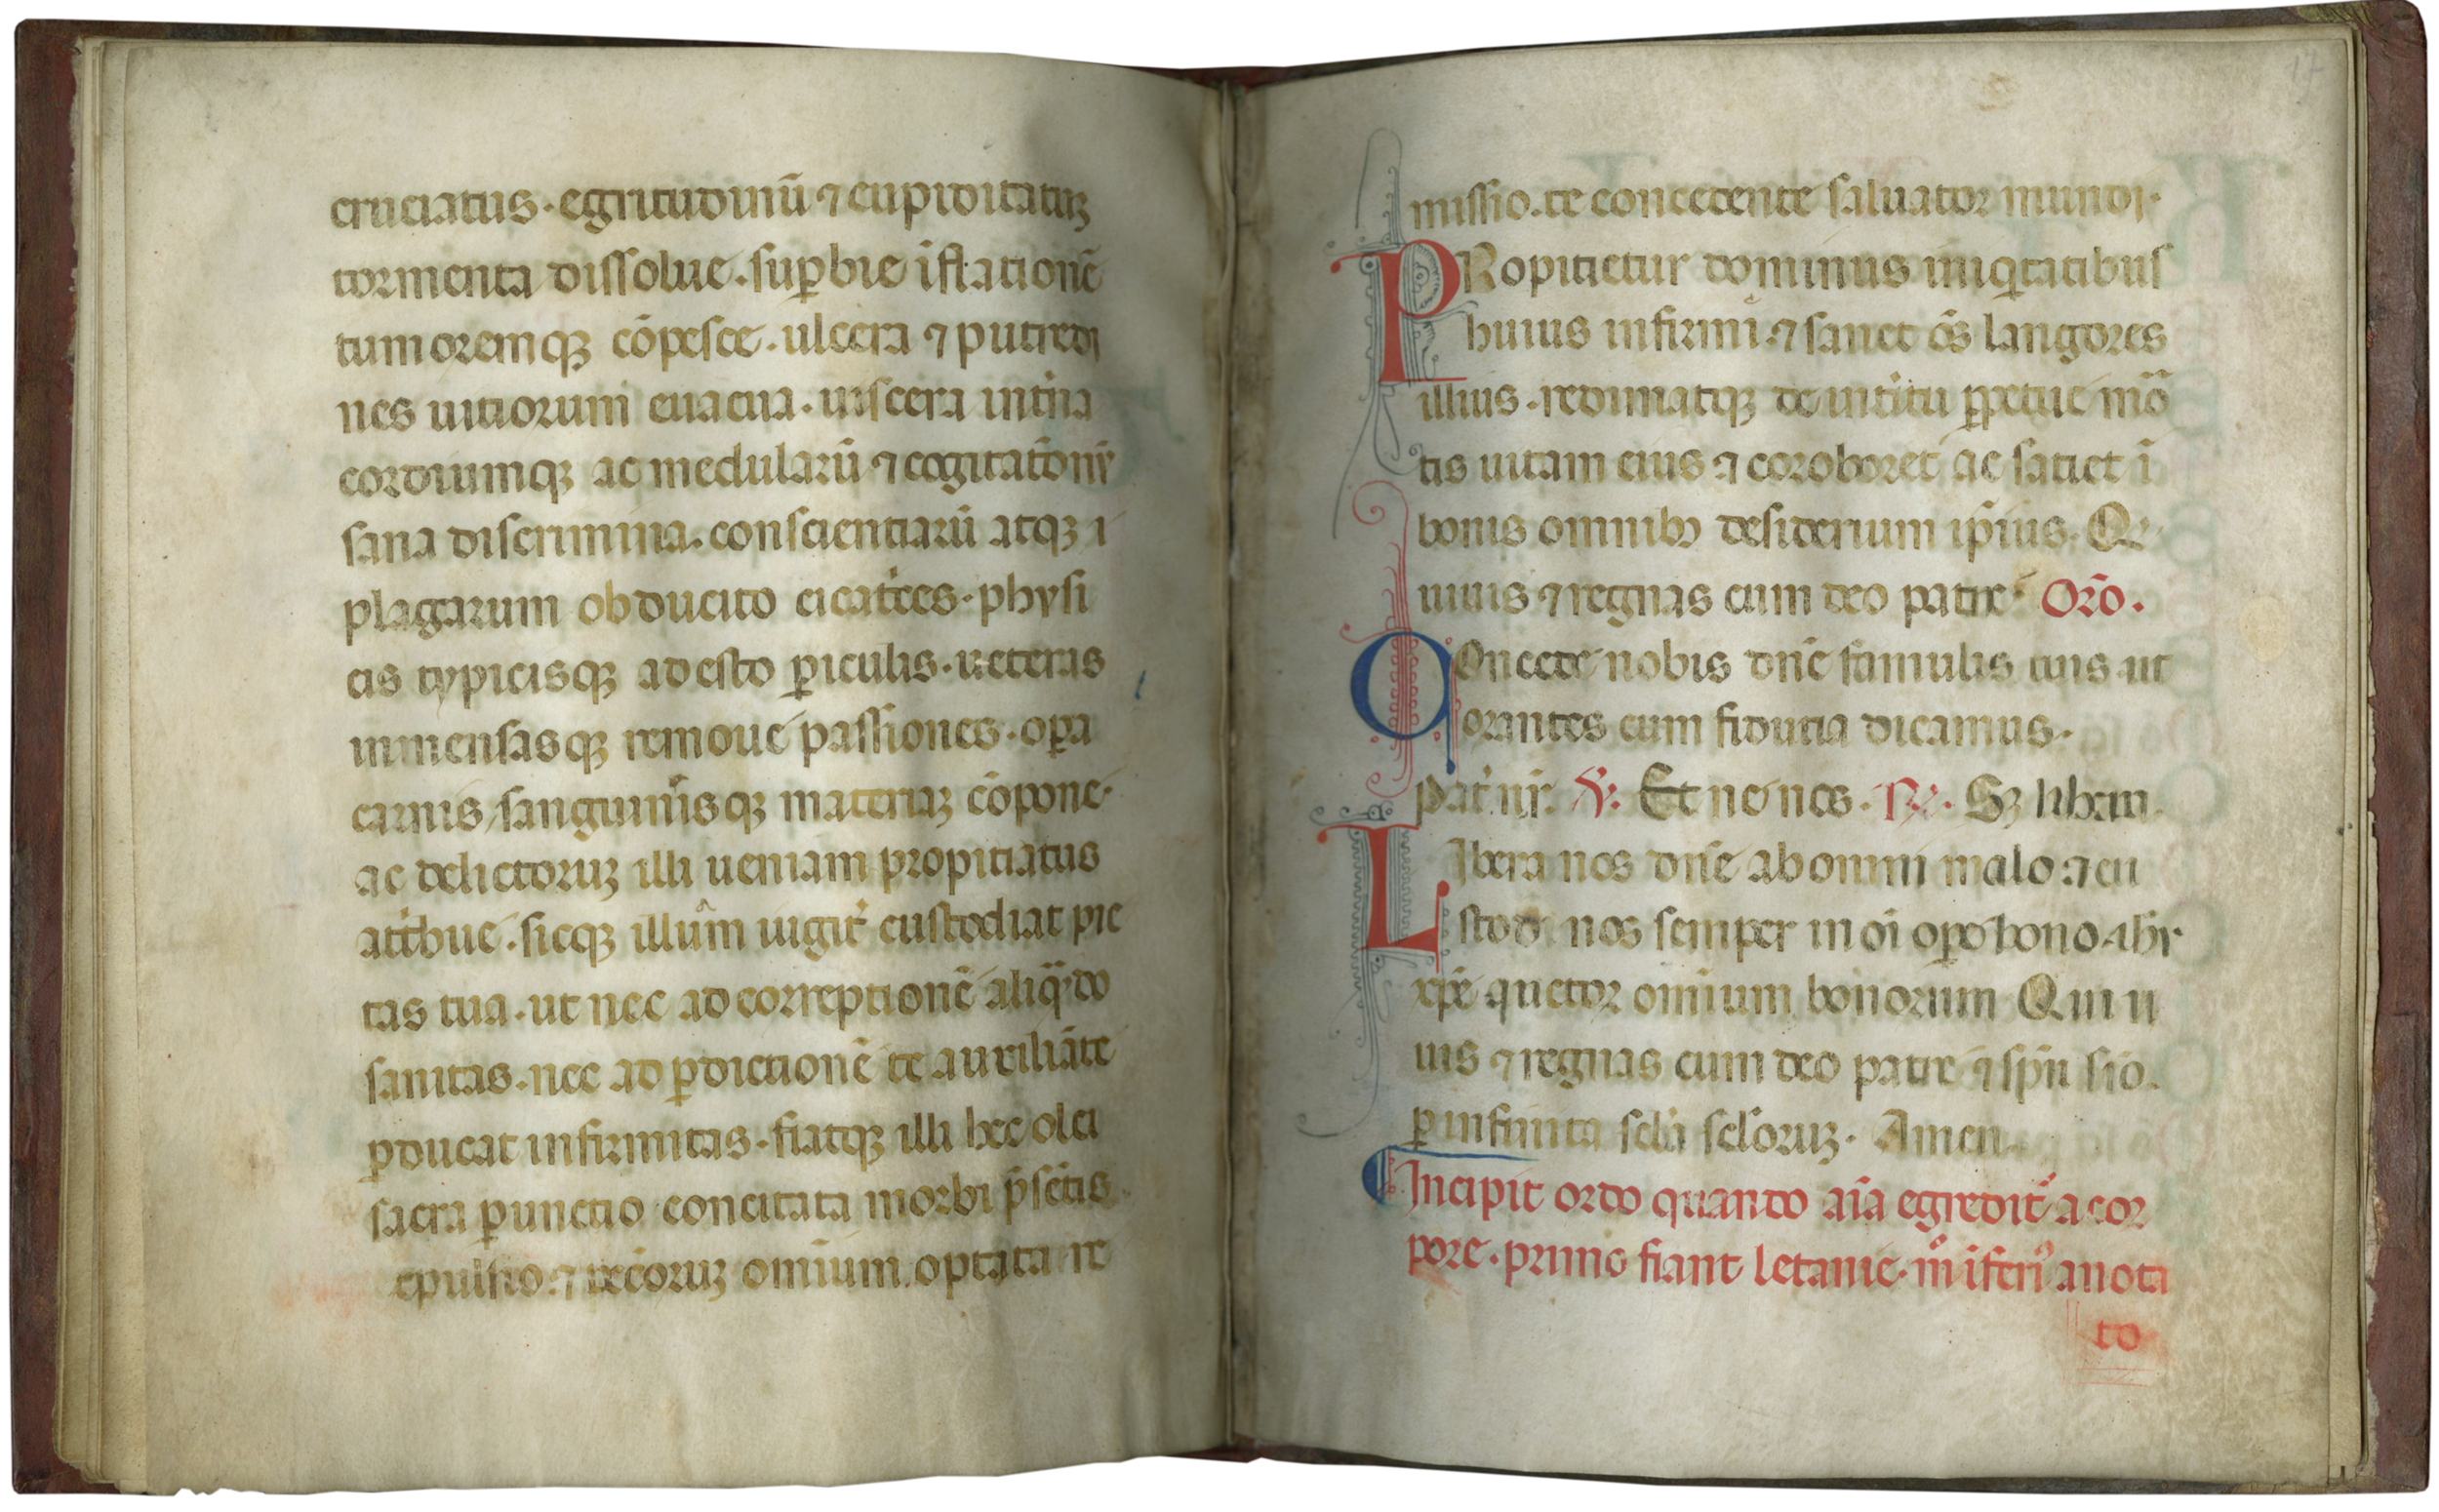 cruciatus · egritudinū ⁊ cupiditatuꝫ
tormenta dissolue · suꝑbie īflationē
tumoremqꝫ cōpesce · ulcera ⁊ putredi
nes uitiorum euacua · uiscera int̓na
cordiumqꝫ ac medularū ⁊ cogitatōnū
sana discrimina · conscientiarū atqꝫ ī
plagarum obducito cicat̓ces · physi
cis typicisqꝫ adesto ꝑiculis · ueteras
inmensasqꝫ remoue passiones · oꝑa
carnis / sanguinisqꝫ materiaꝫ cōpone ·
ac delictoruꝫ illi ueniam propitiatus
at̓tbue · sicqꝫ illum̄ iugit̓ custodiat pie
tas tua · ut nec ad correptionē aliqn̄do
sanitas · nec ad ꝑdictionē te auxiliāte
ꝑducat infirmitas · fiatqꝫ illi hec olei
sacra ꝑunctio concitata morbi p̄sētis
epulsio · ⁊ peccoruꝫ omīum optata re
missio · te concedente saluator mundi ·
PRopitietur dominus iniqͥtatibus
huius infirmi · ⁊ sanet oēs langores
illius · redimatqꝫ de int̓itu ꝑpetue mor̄
tis uitam eius ⁊ coroboret ac satiet ī
bonis omnibꝫ desiderium ip̄ius · Qͥ
uiuis ⁊ regnas cum deo patre · Orō ·
COncede nobis dn̄e famulis tuis ut
orantes cum fiducia dicamus ·
pat̓ nr̄ · ℣. Et ne nos · ℟. Sꝫ libera
LIbera nos dn̄e ab omni malo · ⁊ cu
stodi nos semper in oī oꝑe bono · ihū
xp̄e auctor omīum bonorum Qui ui
uis ⁊ regnas cum deo patre ⁊ sp̄u sc̄o ·
ꝑ infinita scl̄a scl̄oruꝫ · Amen
Incipit ordo quando aīa egredit̓ a cor
pore · primo fiant letanie · ut īferiꝰ anota
to